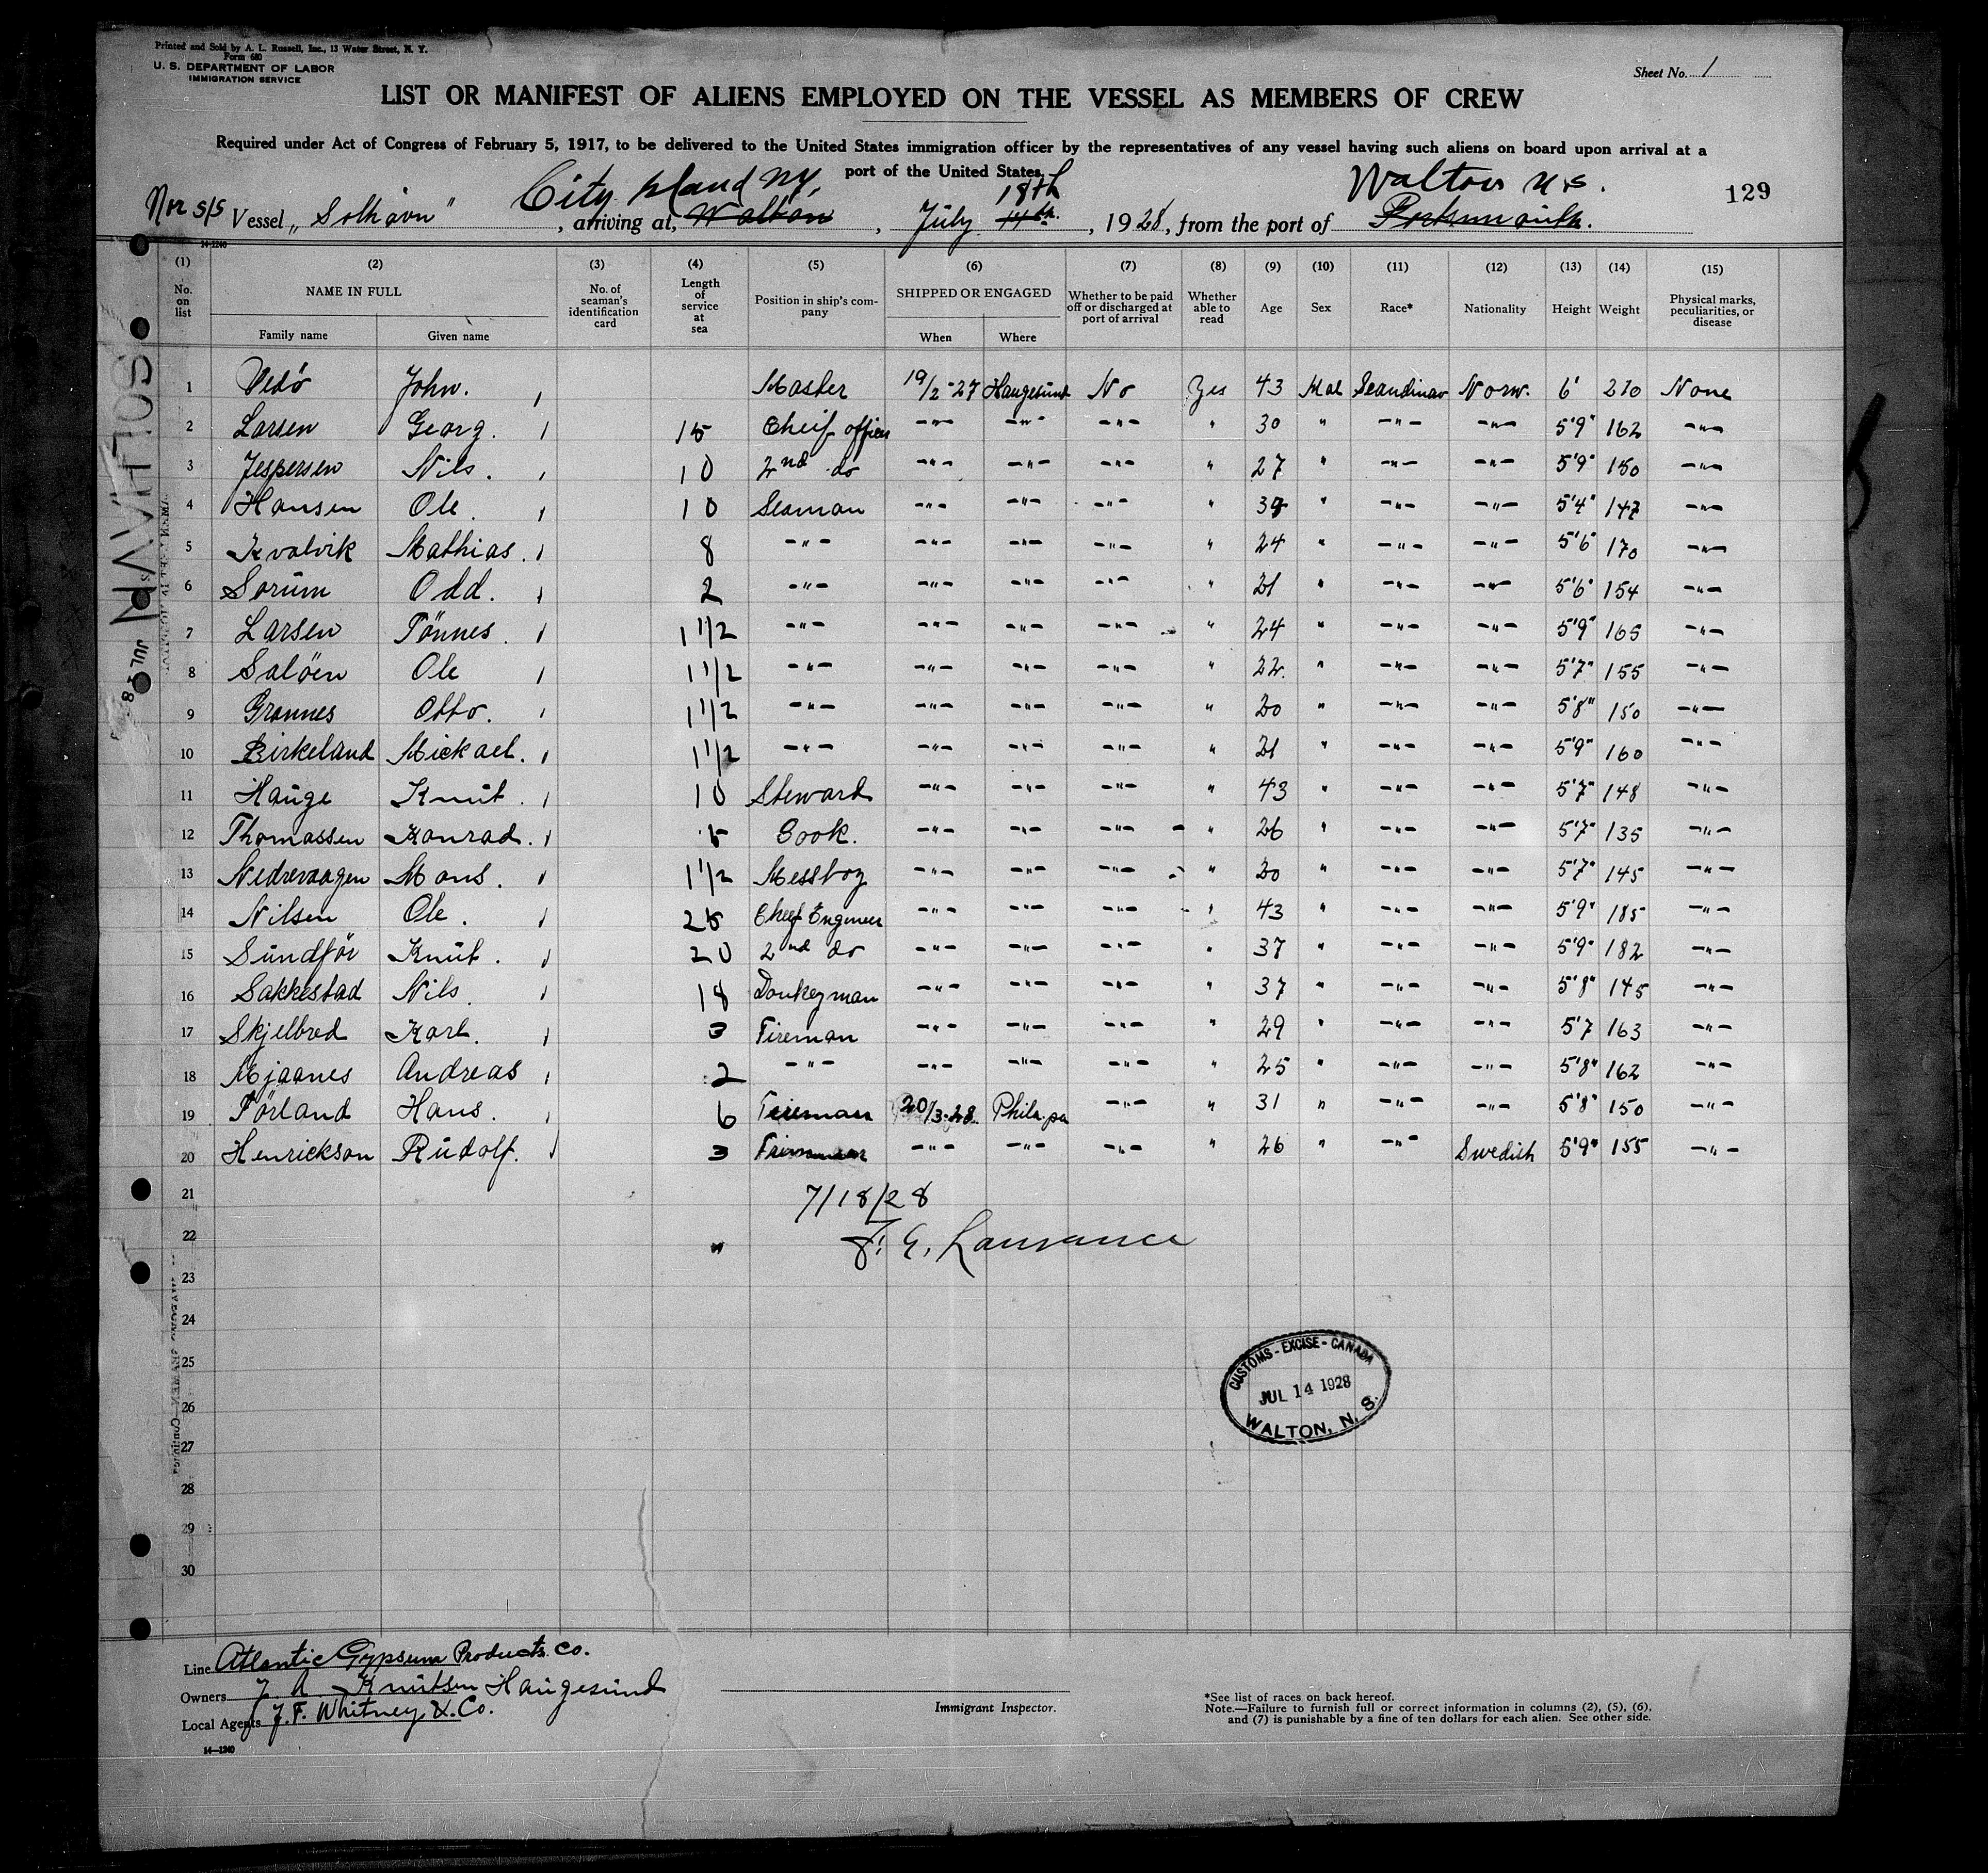 Printed and Sold by A. L. Russell, Inc., 13 Water Street, N. Y.
Form 680
U. S. DEPARTMENT OF LABOR
IMMIGRATION SERVICE
Sheet No. 1
LIST OR MANIFEST OF ALIENS EMPLOYED ON THE VESSEL AS MEMBERS OF CREW
Required under Act of Congress of February 5, 1917, to be delivered to the United States immigration officer by the representatives of any vessel having such aliens on board upon arrival at a
port of the United States.
129
City Island NY, 18th Walton N.S.
Nor S/S Vessel „Solhavn" , arriving at, Walton , July 14th. , 1928, from the port of Portsmouth.
14-1240
(1) (2) (3) (4) (5) (6) (7) (8) (9) (10) (11) (12) (13) (14) (15)
No. on list NAME IN FULL Family name Given name No. of seaman's identification card Length of service at sea Position in ship's company SHIPPED OR ENGAGED When Where Whether to be paid off or discharged at port of arrival Whether able to read Age Sex Race* Nationality Height Weight Physical marks, peculiarities, or disease
1 Vedö John. Master 19/2-27 Haugesund No Yes 43 Mal Scandinav Norw. 6' 210 None
2 Larsen Georg. 15 Cheif officer -"- -"- -"- " 30 " -"- -"- 5'9" 162 -"-
3 Jespersen Nils. 10 2nd do -"- -"- -"- " 27 " -"- -"- 5'9" 150 -"-
4 Hansen Ole. 10 Seaman -"- -"- -"- " 39 " -"- -"- 5'4" 147 -"-
5 Kvalvik Mathias. 8 -"- -"- -"- -"- " 24 " -"- -"- 5'6" 170 -"-
6 Sorum Odd. 2 -"- -"- -"- -"- " 21 " -"- -"- 5'6" 154 -"-
7 Larsen Tönnes. 1 1/2 -"- -"- -"- -"- " 24 " -"- -"- 5'9" 165 -"-
8 Salöen Ole 1 1/2 -"- -"- -"- -"- " 22. " -"- -"- 5'7" 155 -"-
9 Grannes Otto. 1 1/2 -"- -"- -"- -"- " 20 " -"- -"- 5'8" 150 -"-
10 Birkeland Mickael. 1 1/2 -"- -"- -"- -"- " 21 " -"- -"- 5'9" 160 -"-
11 Hauge Knut. 10 Steward -"- -"- -"- " 43 " -"- -"- 5'7" 148 -"-
12 Thomassen Konrad. 5 Cook. -"- -"- -"- " 26 " -"- -"- 5'7" 135 -"-
13 Nedrevaagen Mons. 1 1/2 Messboy -"- -"- -"- " 20 " -"- -"- 5'7" 145 -"-
14 Nilsen Ole. 25 Cheef Engineer -"- -"- -"- " 43 " -"- -"- 5'9" 185 -"-
15 Sundför Knut. 20 2nd do -"- -"- -"- " 37 " -"- -"- 5'9" 182 -"-
16 Sakkestad Nils. 18 Donkeyman -"- -"- -"- " 37 " -"- -"- 5'8" 145 -"-
17 Skjelbred Karl. 3 Fireman -"- -"- -"- " 29 " -"- -"- 5'7 163 -"-
18 Mjaanes Andreas 2 -"- -"- -"- -"- " 25 " -"- -"- 5'8" 162 -"-
19 Törland Hans. 6 Fireman 20/3-28. Phila. pa -"- " 31 " -"- -"- 5'8" 150 -"-
20 Henrickson Rudolf. 3 -"- -"- -"- " 26 " -"- Swedish 5'9" 155 -"-
21
7/18/28
22
23
24
25
26
27
28
29
30
CUSTOMS - EXCISE - CANADA
JUL 14 1928
WALTON, N. S.
SOLHAVN
JUL 18
Line Atlantic Gypsum Products Co.
Owners Knutsen Haugesund
Local Agents J. F. Whitney & Co.
14-1240
Immigrant Inspector.
*See list of races on back hereof.
Note.—Failure to furnish full or correct information in columns (2), (5), (6),
and (7) is punishable by a fine of ten dollars for each alien. See other side.